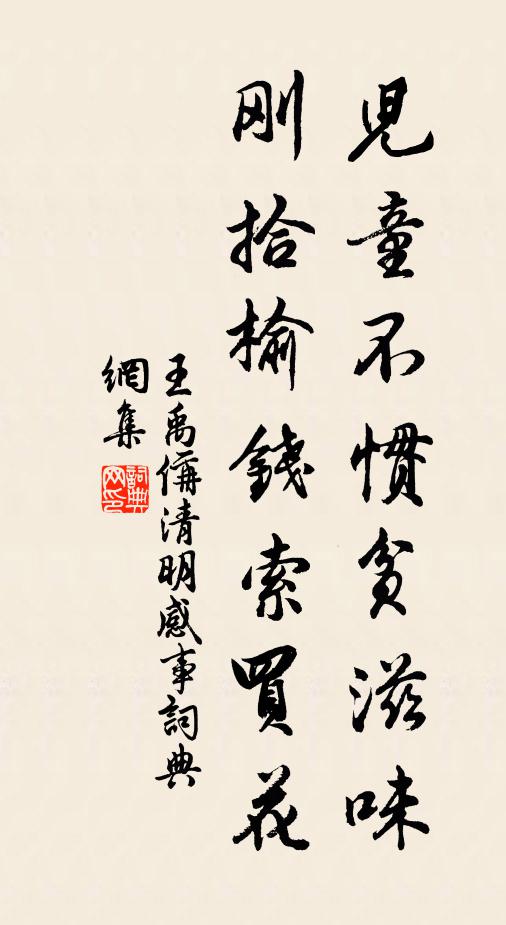 兒童不慣貧滋味
剛拾榆錢索買花
王禹偁清明感事詞典
網集
詞典
网印